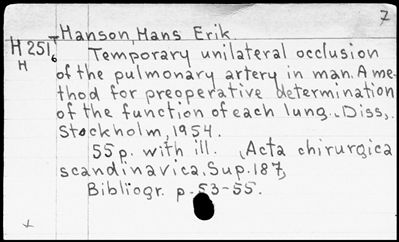 7
Hanson, Hans Erik.
H 251,6 Temporary unilateral occlusion
H of the pulmonary artery in man. A me-
thod for preoperative determination
of the function of each lung. Diss,.
Stockholm, 1954.
55 p. with ill. (Acta chirurgica
scandinavica, Sup. 187)
Bibliogr. p. 53-55.